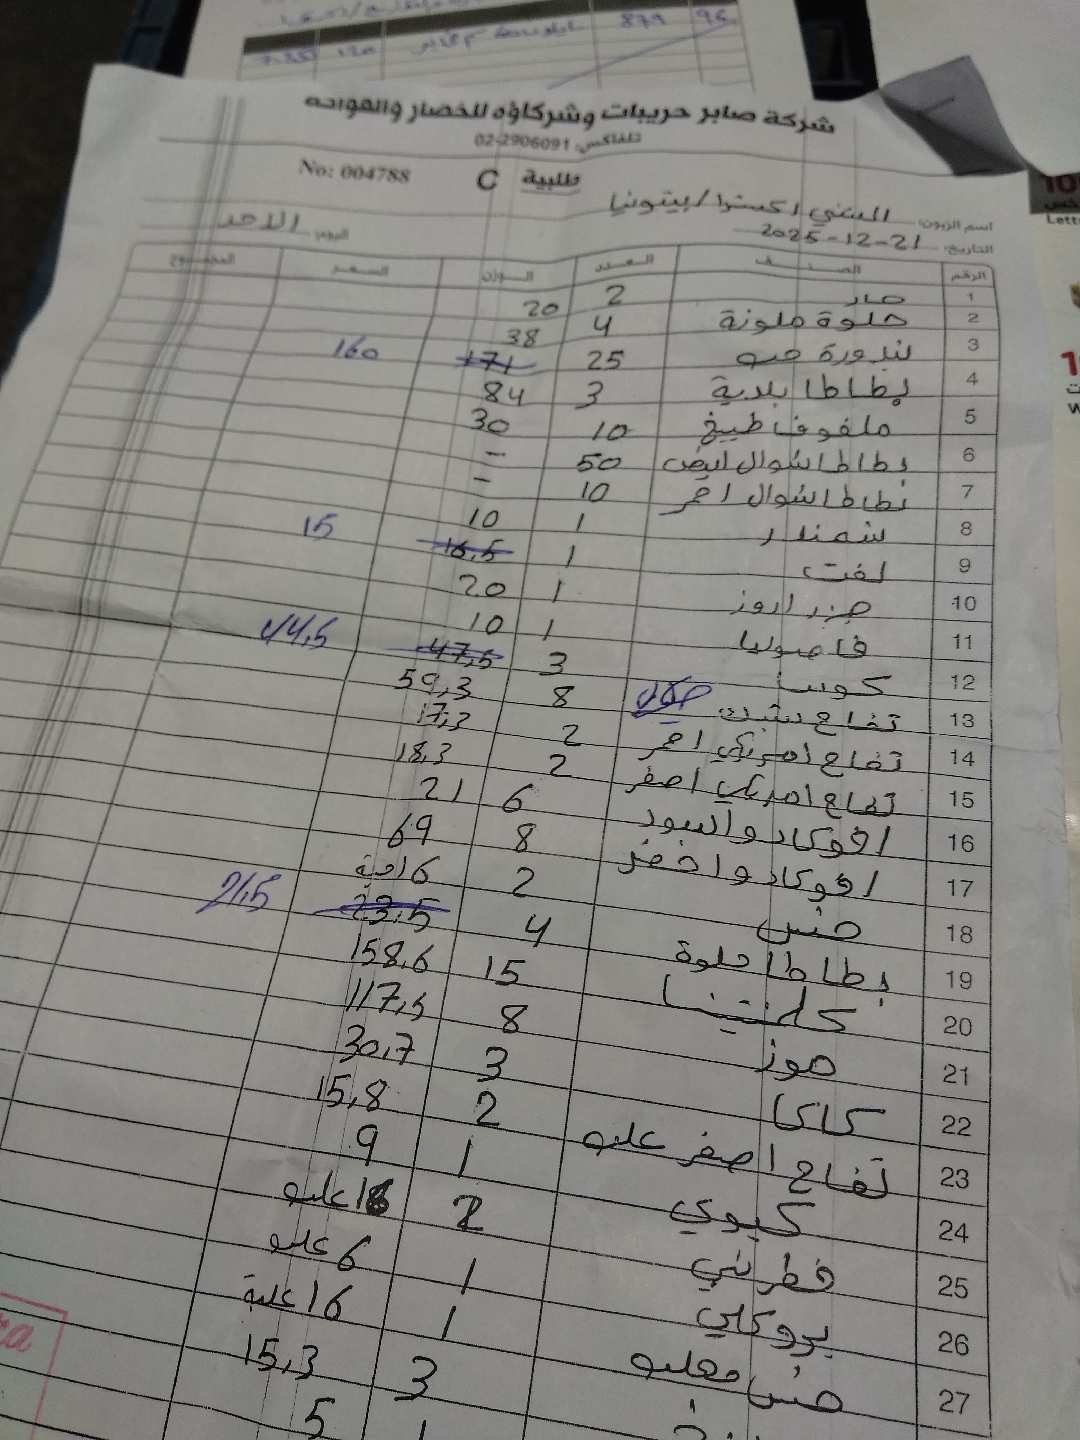 879 96,
120
شركة صابر حريبات وشركاؤه للخضار والفواكه
تلفاكس: 02-2906091
طلبية C No: 004788
اسم الزبون: السني اكسترا / بيتونيا
التاريخ: 21-12-2025 اليوم: الاحد
الرقم الصنف العدد الوزن السعر المجموع
1 خيار 2 20
2 حلوة ملونة 4 38
3 بندورة حب 25 171 160
4 بطاطا بلدية 3 84
5 ملفوف طبيخ 10 30
6 بطاطا شوال ابيض 50 -
7 بطاطا شوال احمر 10 -
8 شمندر 1 10
9 لفت 1 16,5 15
10 جزر اروز 1 20
11 فاصوليا 1 10
12 كوسا 3 47,5 44,5
13 تفاح سترك 8 59,3
14 تفاح امريكي احمر 2 17,3
15 تفاح امريكي اصفر 2 18,3
16 افوكادو اسود 6 21
17 افوكادو اخضر 8 69
18 خس 2
19 بطاطا حلوة 4 23,5 21,5
20 كلمنتينا 15 158,6
21 موز 8 117,5
22 كاكا 3 30,7
23 تفاح اصفر علبه 2 15,8
24 كيوي 1 9
25 فطر بني 2 علبه
26 بروكلي 1 6 علبه
27 خس معلبه 1 16 علبة
3 15,3
5